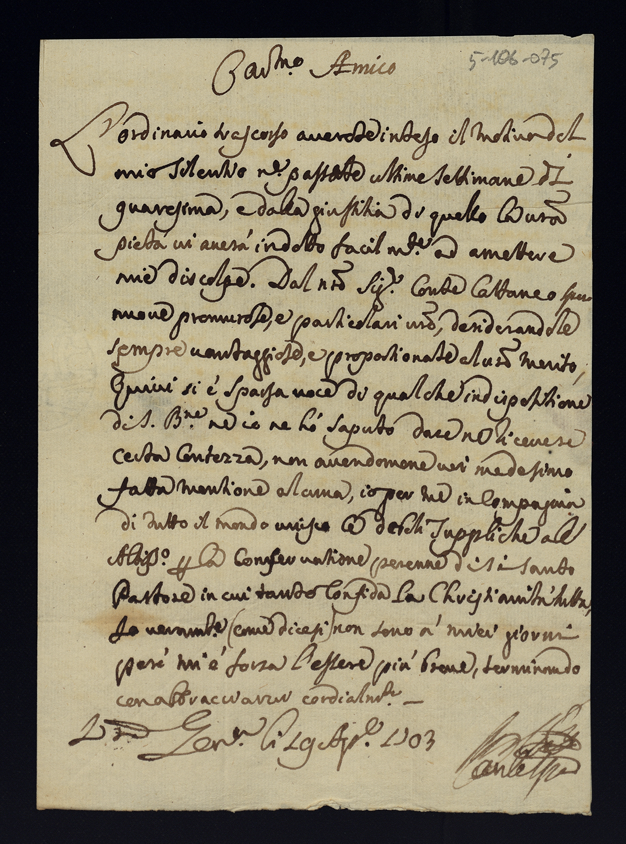 Car.mo Amico
5-106-075
L'ordinario trascorso averete inteso il motivo del
mio silentio ne passate ultime settimane di
quaresima, e dalla giustitia di quello la vra
pietà vi averà indotto facil m.te ad amettere
mie discolpe. Dal nro Sig.r Conte Cattaneo
nuove premurose, e particolari vre, desiderandole
sempre vantaggiose, e proportionate al vro merito,
Quivi si è sparsa voce di qualche indispositione
di S. B.ne ne io ne hò saputo dare nè ricevere
certa contezza, non avendomene voi medesimo
fatta mentione alcuna, io per me in Compagnia
di tutto il mondo unisco le suppliche al
Altiss.o la Conservatione perenne di si santo
Pastore in cui tanto confida la Christianità tutta,
Io veramte (come dicesi) non sono a miei giorni
però mi è forza l'essere più breve, terminando
con abbracciarvi cordialmte.
Gen.a li 19 Ap.e 1703